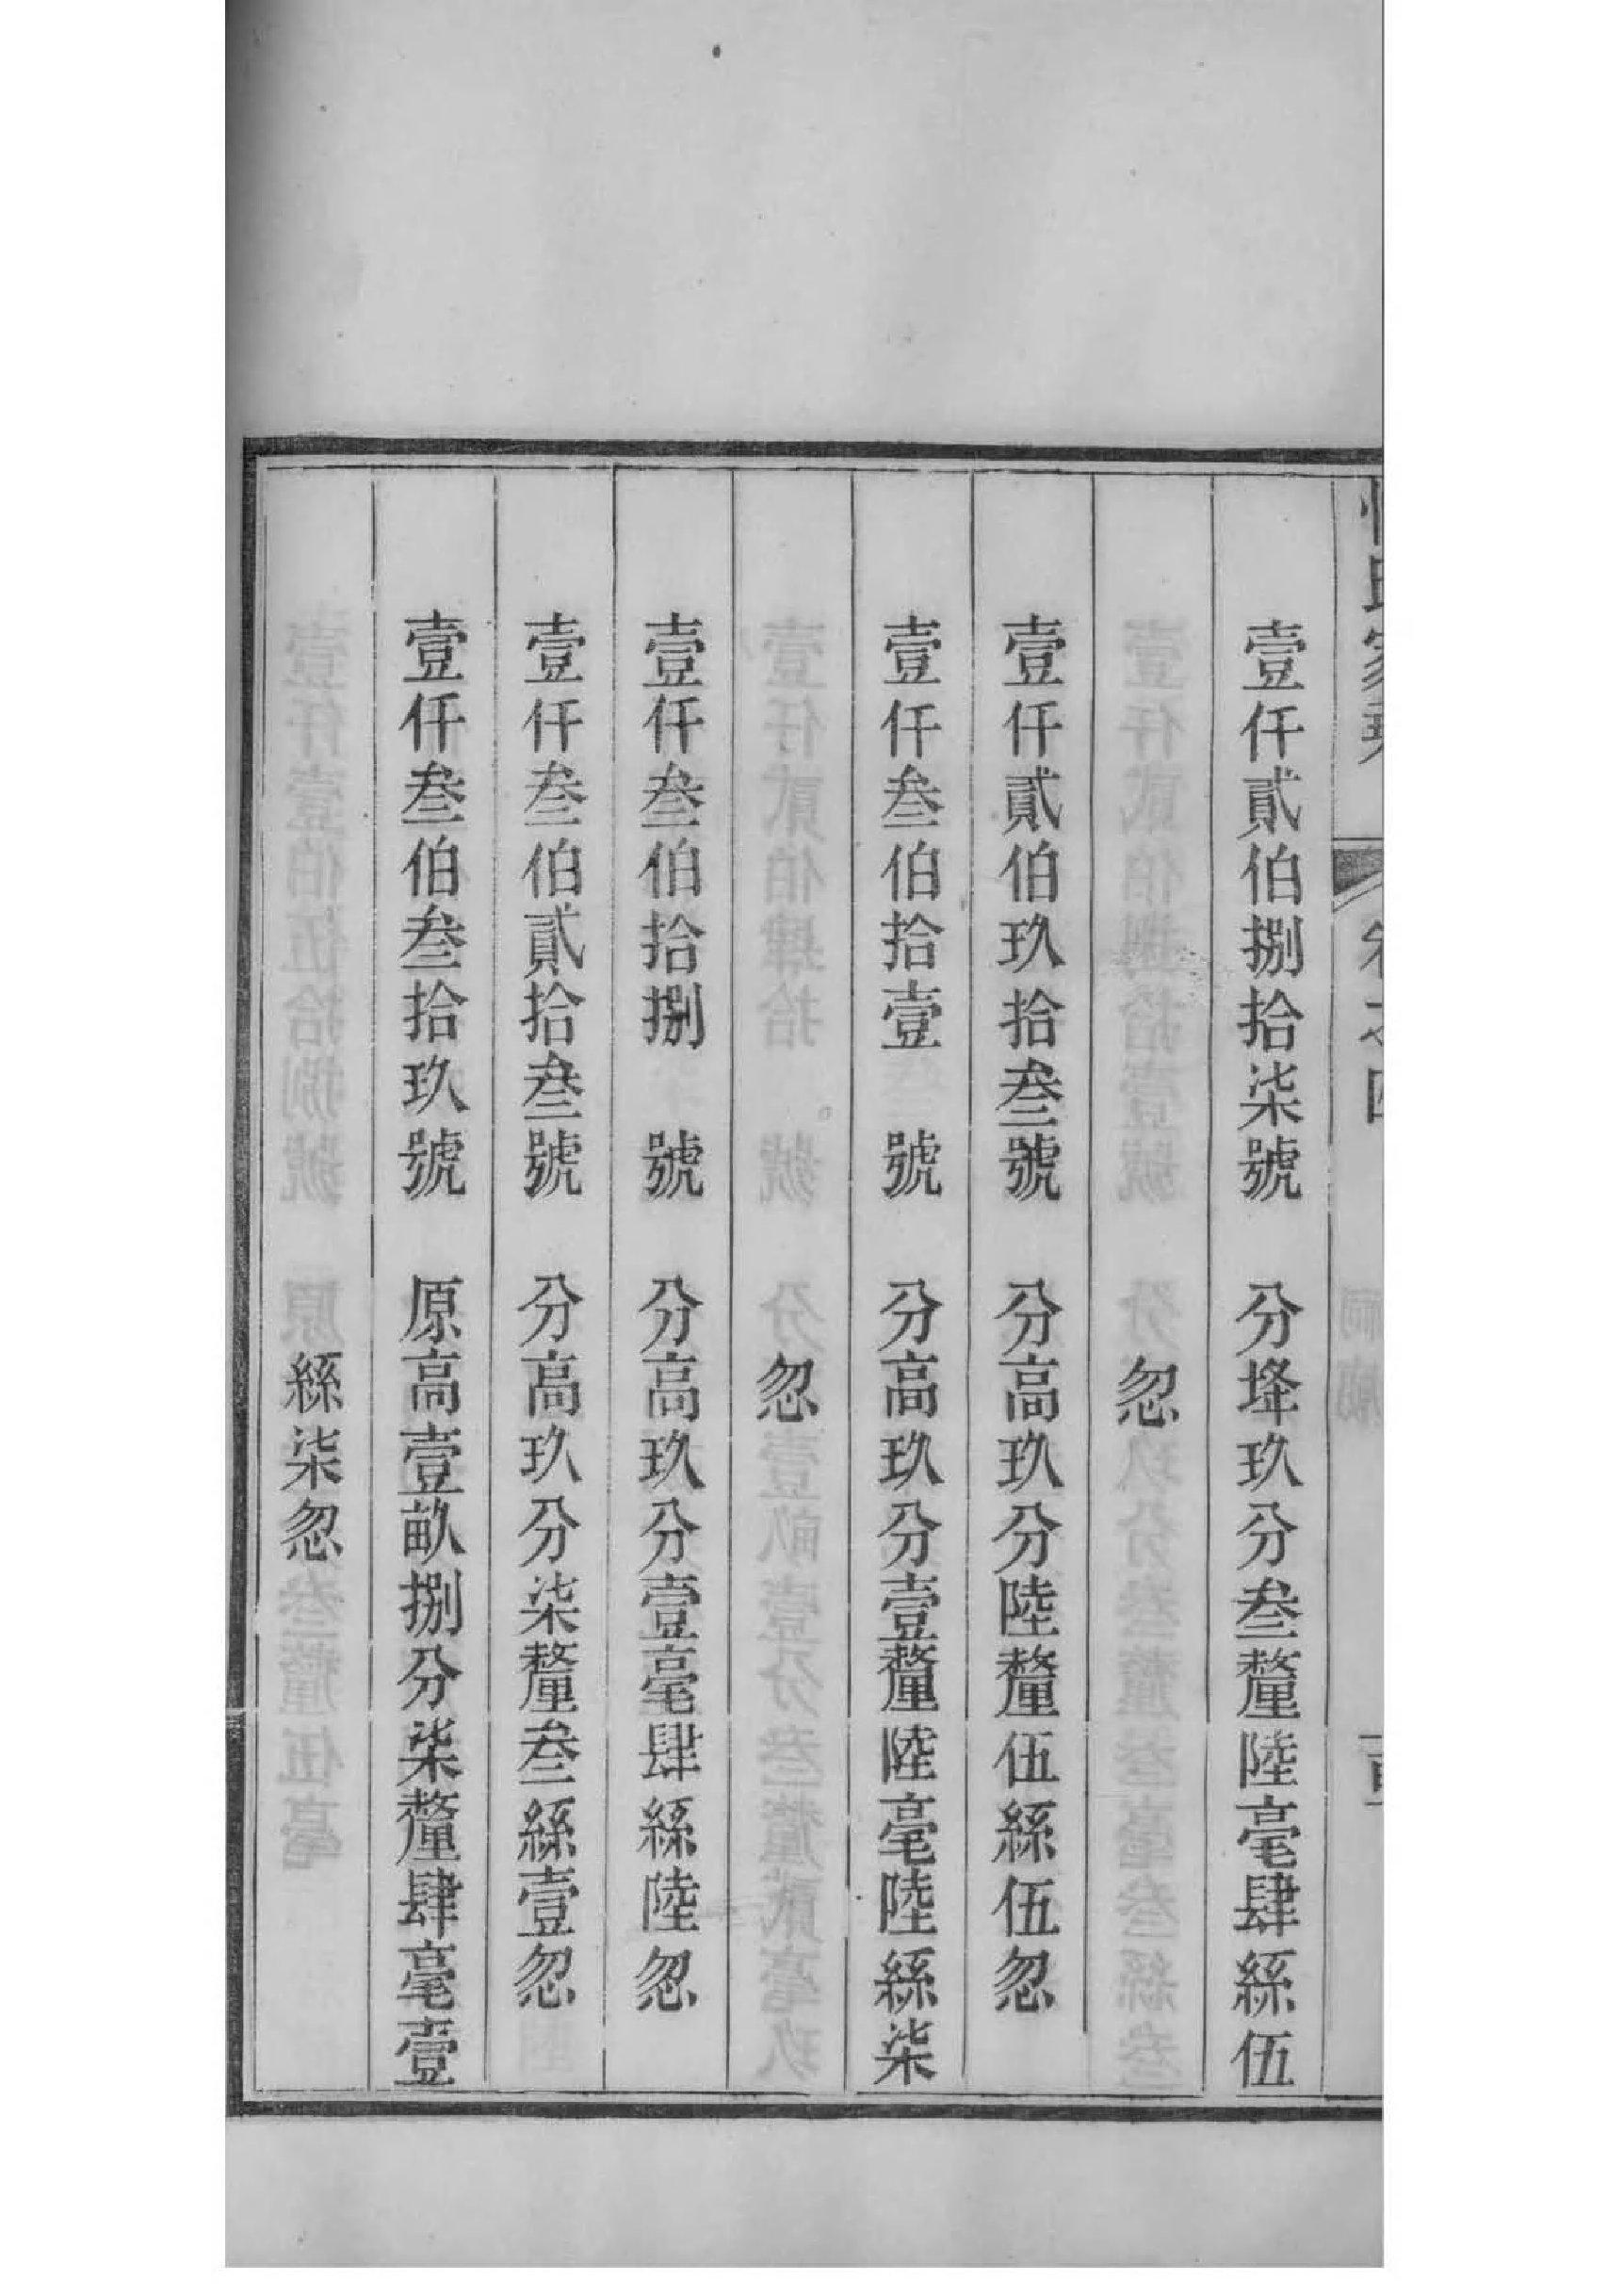 壹仟貳伯捌拾柒號　分埄玖分叁釐陸毫肆絲伍
忽
壹仟貳伯玖拾叁號　分高玖分陸釐伍絲伍忽
壹仟叁伯拾壹　號　分高玖分壹釐陸毫陸絲柒
忽
壹仟叁伯拾捌　號　分高玖分壹毫肆絲陸忽
壹仟叁伯貳拾叁號　分高玖分柒釐叁絲壹忽
壹仟叁伯叁拾玖號　原高壹畝捌分柒釐肆毫壹
絲柒忽